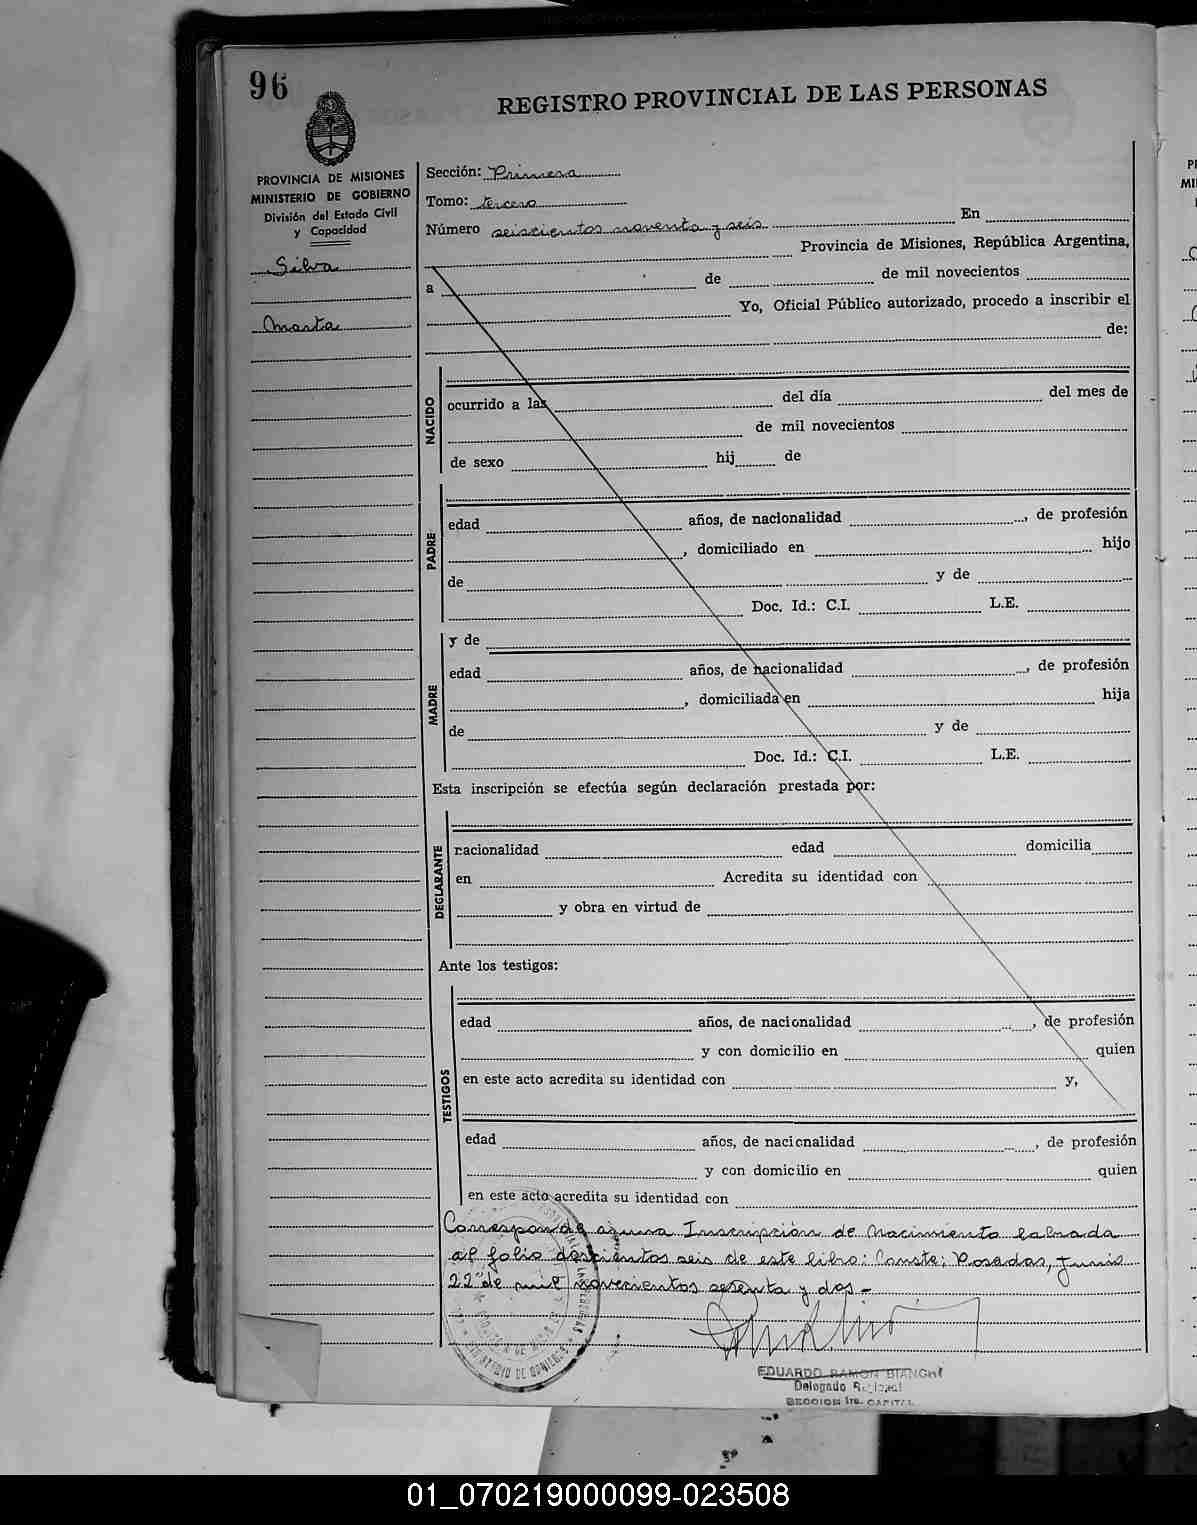 96
REGISTRO PROVINCIAL DE LAS PERSONAS
PROVINCIA DE MISIONES
MINISTERIO DE GOBIERNO
División del Estado Civil
y Capacidad
Silva
Marta
Sección: Primera
Tomo: tercero
Número seiscientos noventa y seis En
Provincia de Misiones, República Argentina,
a de de mil novecientos
Yo, Oficial Público autorizado, procedo a inscribir el
de:
NACIDO
ocurrido a las del día del mes de
de mil novecientos
de sexo hij de
PADRE
edad años, de nacionalidad , de profesión
, domiciliado en hijo
de y de
Doc. Id.: C.I. L.E.
MADRE
y de
edad años, de nacionalidad , de profesión
, domiciliada en hija
de y de
Doc. Id.: C.I. L.E.
Esta inscripción se efectúa según declaración prestada por:
DECLARANTE
nacionalidad edad domicilia
en Acredita su identidad con
y obra en virtud de
Ante los testigos:
TESTIGOS
edad años, de nacionalidad , de profesión
y con domicilio en quien
en este acto acredita su identidad con y,
edad años, de nacionalidad , de profesión
y con domicilio en quien
en este acto acredita su identidad con
Corresponde Inscripción de Nacimiento labrada
al folio doscientos seis de este libro: Conste; Posadas, Junio
22 de mil novecientos sesenta y dos-
EDUARDO RAMON BIANCHI
Delegado Regional
SECCION 1ra. CAPITAL
01_070219000099-023508